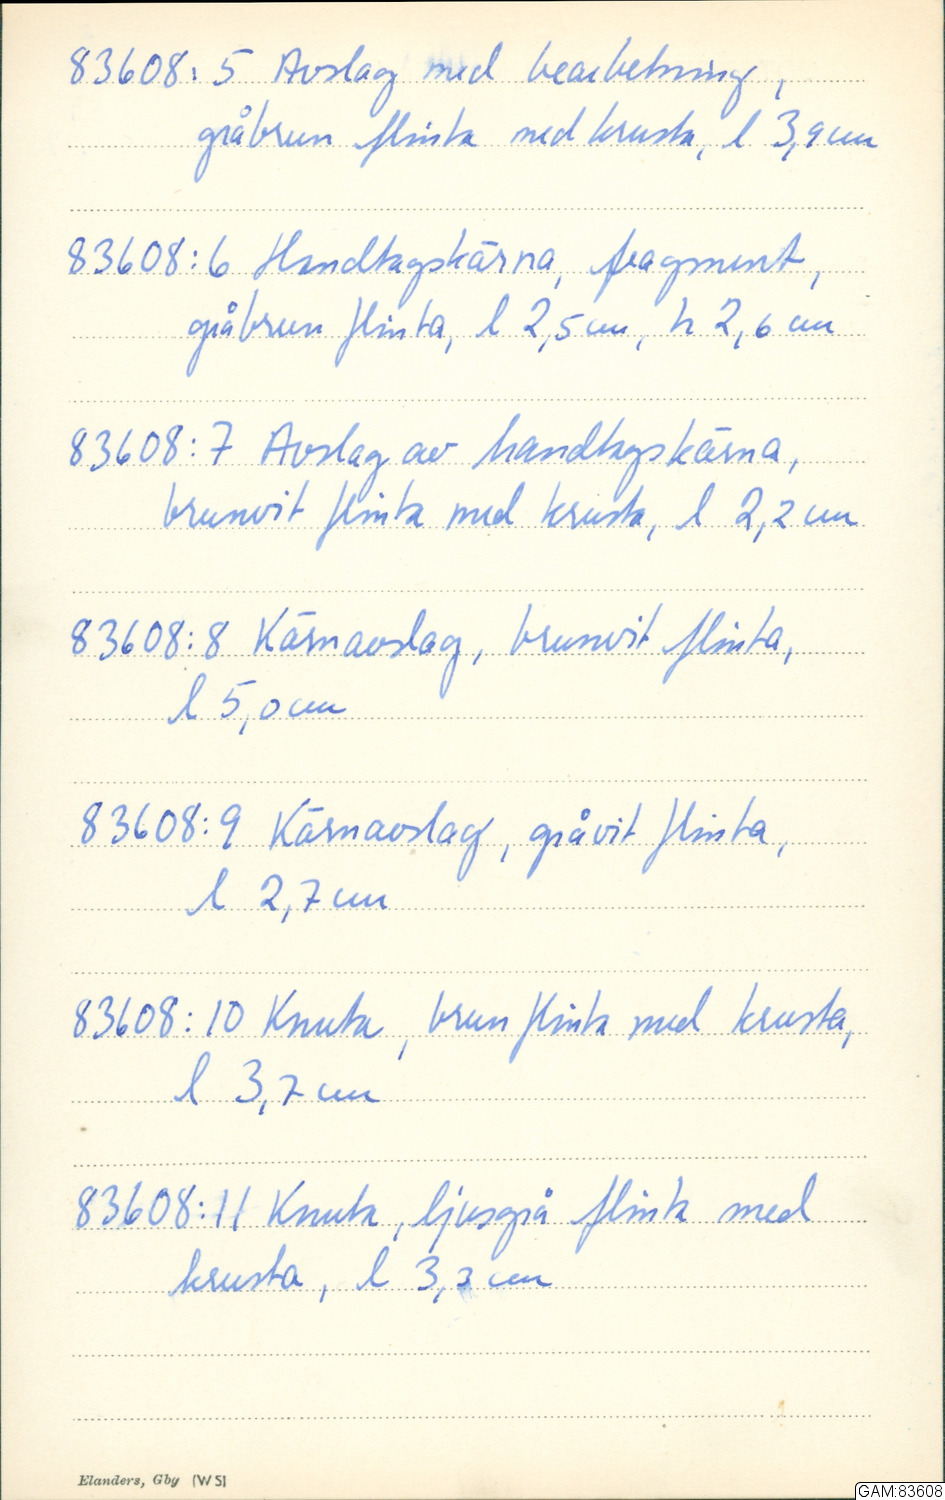 83608:5 Avslag med bearbetning,
gråbrun flinta med krusta, l 3,9 cm
83608:6 Handtagskärna, fragment,
gråbrun flinta, l 2,5 cm, h 2,6 cm
83608:7 Avslag av handtagskärna,
brunvit flinta med krusta, l 2,2 cm
83608:8 Kärnavslag, brunvit flinta,
l 5,0 cm
83608:9 Kärnavslag, gråvit flinta,
l 2,7 cm
83608:10 Knuta, brun flinta med krusta,
l 3,7 cm
83608:11 Knuta, ljusgrå flinta med
krusta, l 3,3 cm
Elanders, Gbg (W S)
GAM:83608